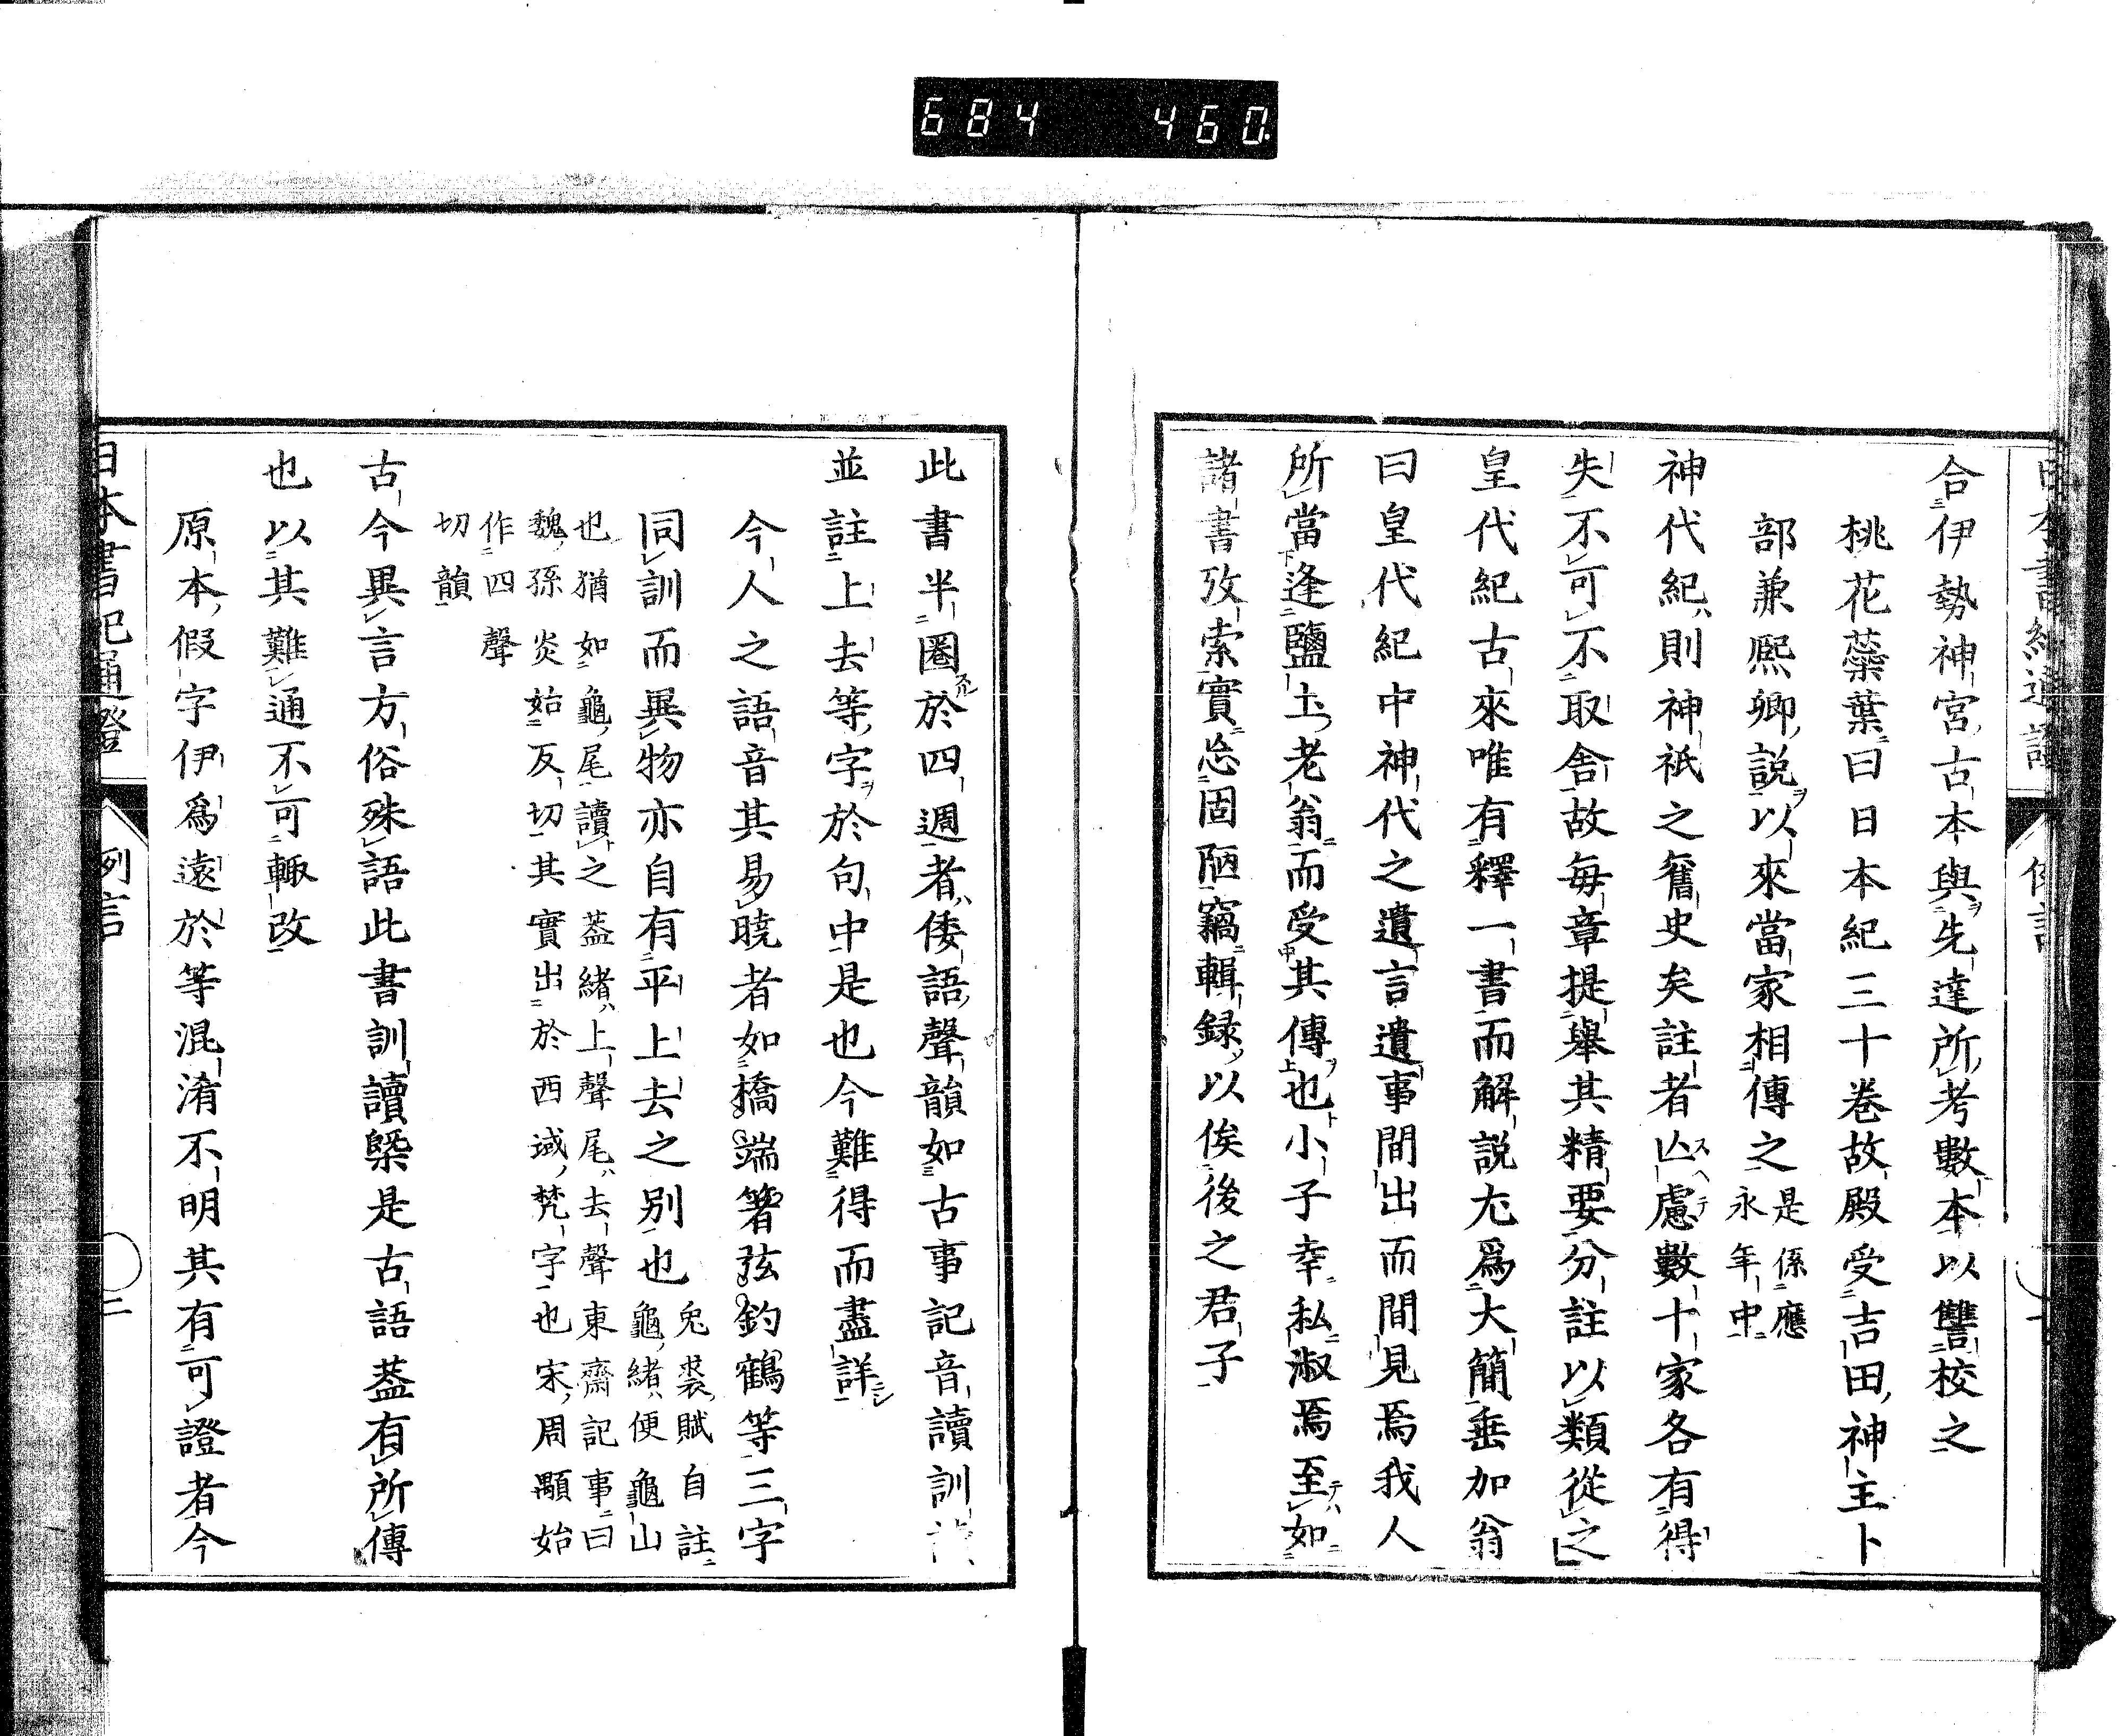 684 460
合伊勢神宮古本與先達所考數本以讐校之
桃花蘂葉曰日本紀三十卷故殿受吉田神主卜
部兼熈卿説以來當家相傳之是係應
永年中
神代紀則神祇之舊史矣註者亾慮數十家各有得
失不可不取舍故毎章提舉其精要分註以類從之
皇代紀古來唯有釋一書而解説尢爲大簡垂加翁
曰皇代紀中神代之遺言遺事間出而間見焉我人
所當逢鹽土老翁而受其傳也小子幸私淑焉至如
諸書攷索實忩固陋竊輯録以俟後之君子
此書半圈於四週者倭語聲韻如古事記音讀訓
並註上去等字於句中是也今難得而盡詳
今人之語音其易曉者如橋端箸弦釣鶴等三字
同訓而異物亦自有平上去之別也兔裘賦自註
龜緒便龜山
也猶如龜尾讀之葢緒上聲尾去聲東齋記事曰
魏孫炎始反切其實出於西域梵字也宋周顒始
作四聲
切韻
古今異言方俗殊語此書訓讀槩是古語葢有所傳
也以其難通不可輙改
原本假字伊爲遠於等混淆不明其有可證者今
日本書紀通證
例言
二